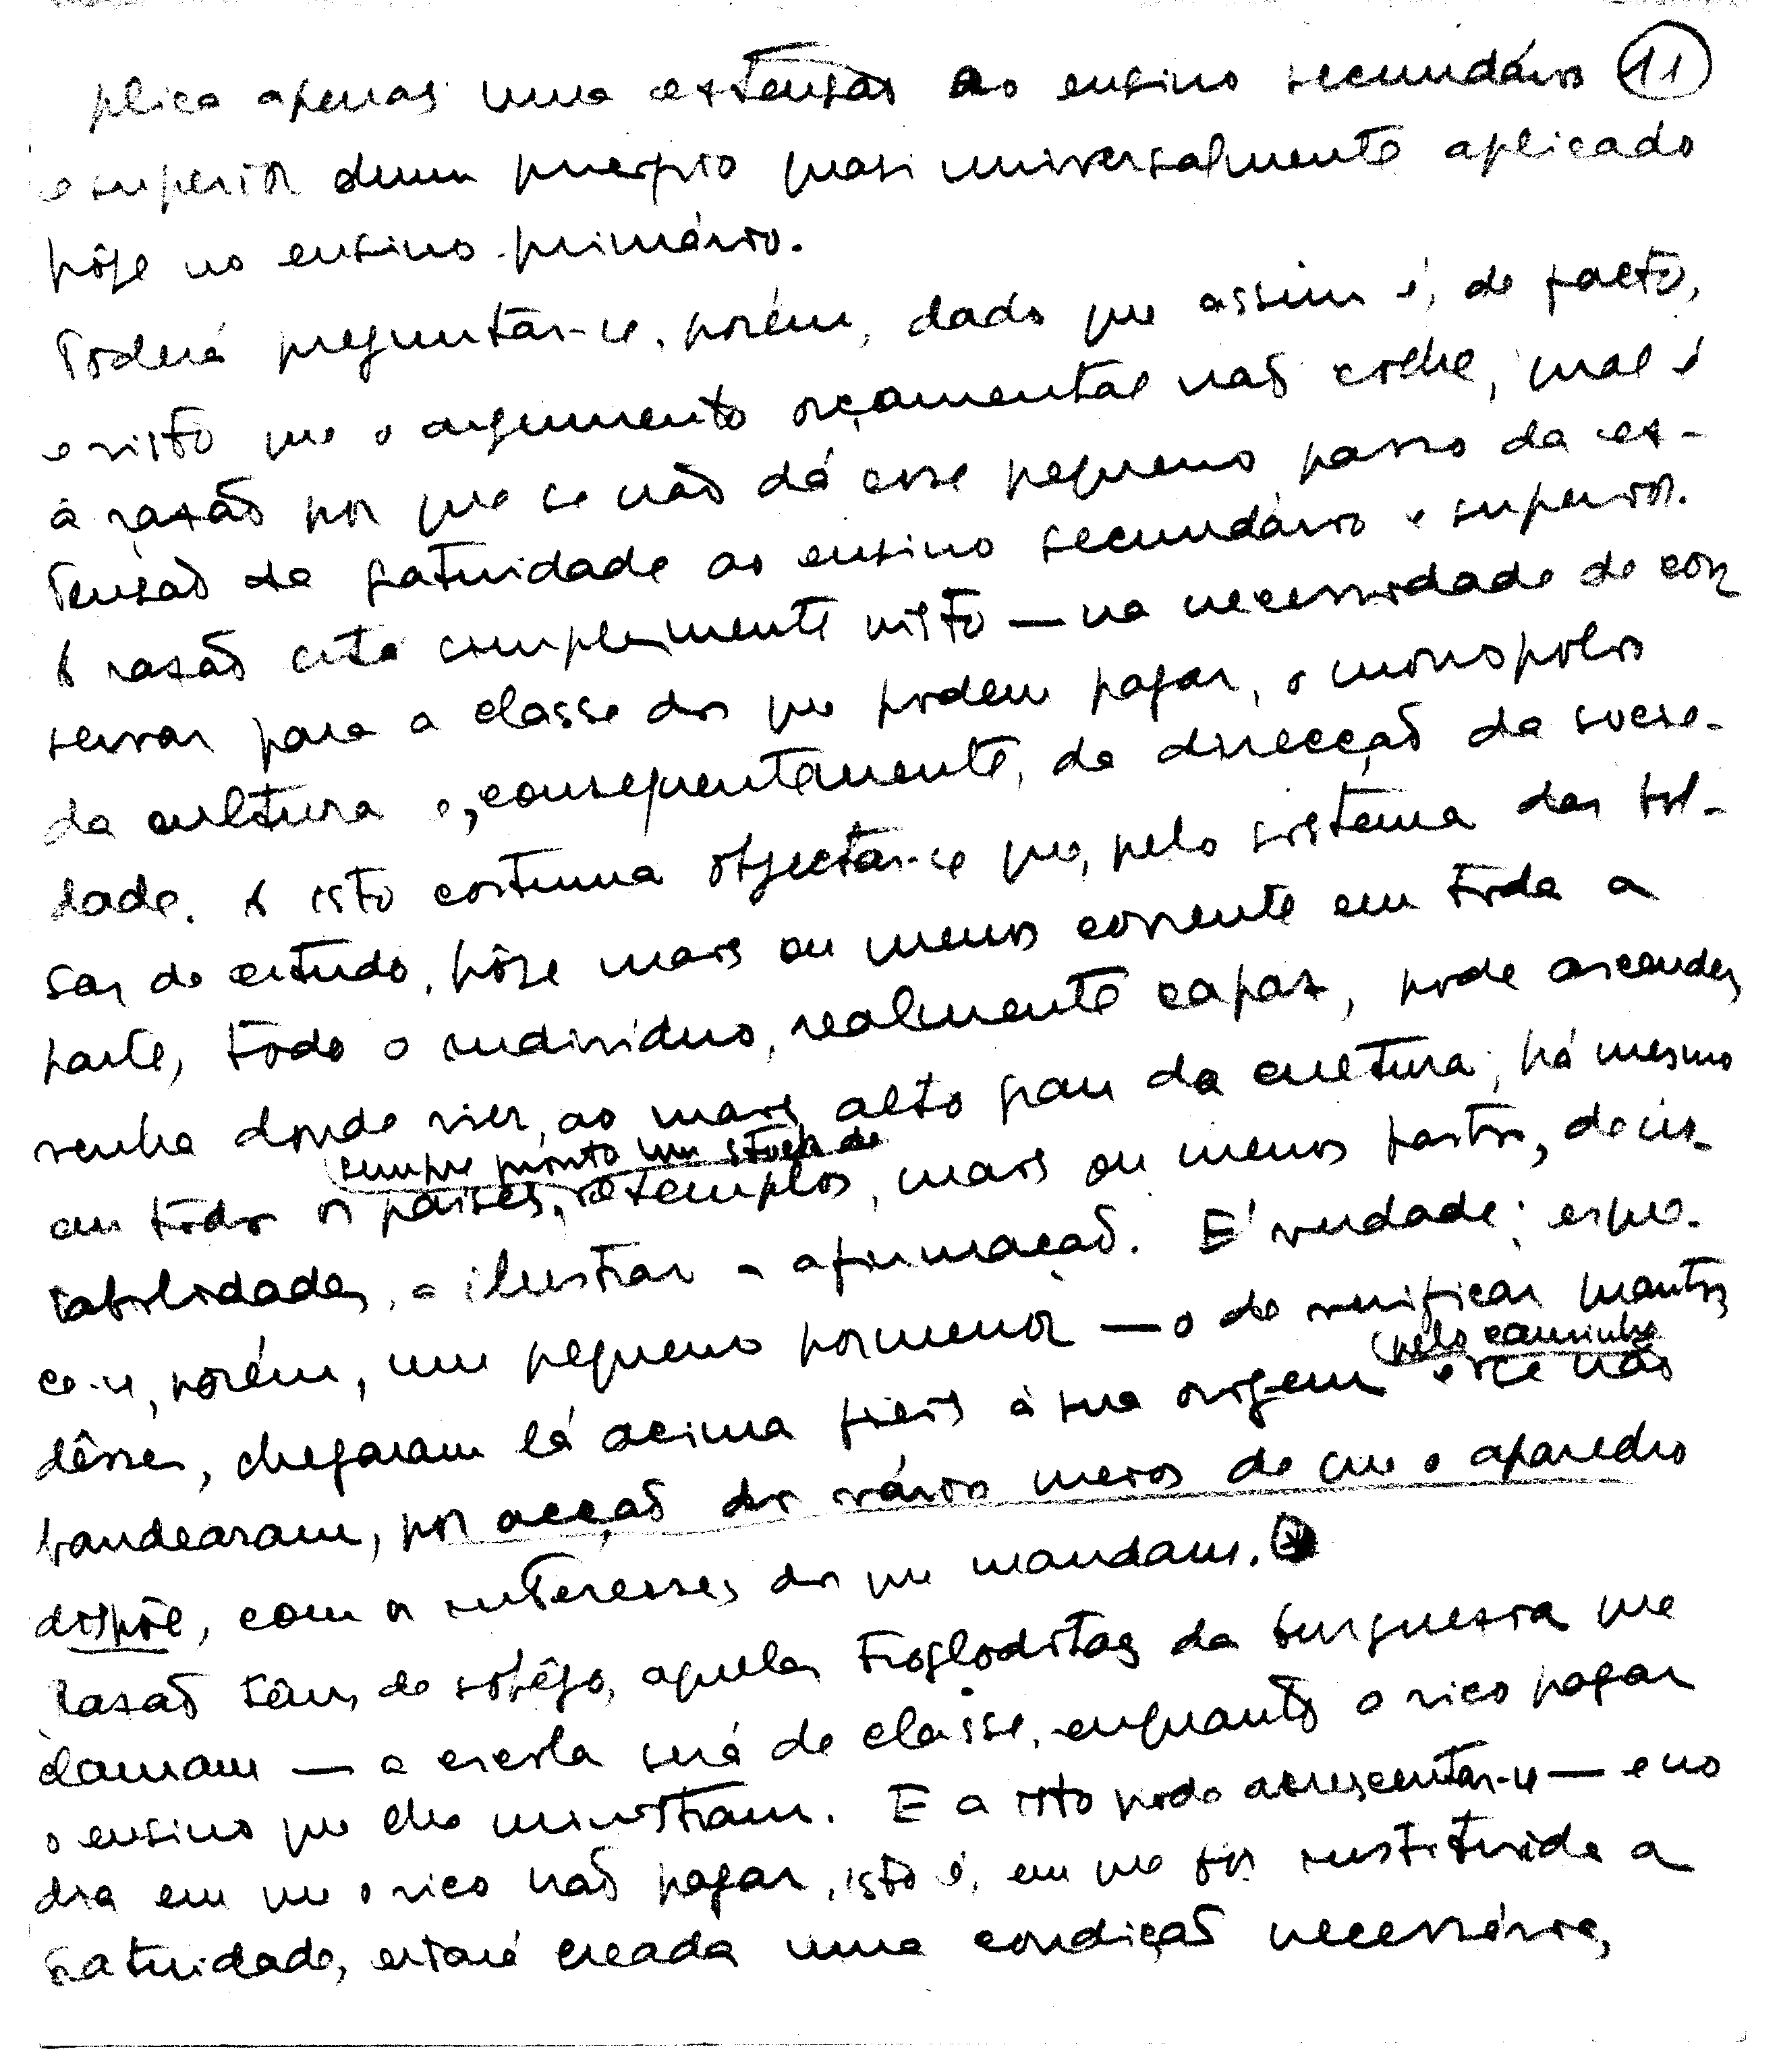 plica apenas uma extensão ao ensino secundário 11
e superior dum princípio quasi universalmente aplicado
hôje no ensino primário.
Poderá preguntar-se, porém, dado que assim é, de facto,
e visto que o argumento orçamental não colhe, qual é
a razão por que se não dá esse pequeno passo da ex-
tensão da gratuidade ao ensino secundário e superior.
A razão está simplesmente nisto — na necessidade de con
servar para a classe dos que podem pagar, o monopólio
da cultura e, consequentemente, da direcção da socie-
dade. A isto costuma objectar-se que, pelo sistema das bol-
sas de estudo, hôje mais ou menos corrente em toda a
parte, todo o indivíduo, realmente capaz, pode ascender,
venha donde vier, ao mais alto grau da cultura; há mesmo
sempre pronto um stock de
em todos os países, exemplos, mais ou menos fartos, de ins
tabilidades, a ilustrar a afirmação. É verdade; esque-
ce-se, porém, um pequeno pormenor — o de verificar quantos
pelo caminho
dêsses, chegaram lá acima fieis à sua origem e se não
bandearam, por acção dos vários meios de que o aparelho
dispõe, com os interesses dos que mandam.
Razão têm, de sobejo, aqueles trogloditas da burguesia que
clamam — a escola será de classe, enquanto o rico pagar
o ensino que lhe ministram. E a isto pode acrescentar-se — e no
dia em que o rico não pagar, isto é, em que fôr instituida a
gratuidade, estará creada uma condição necessária,